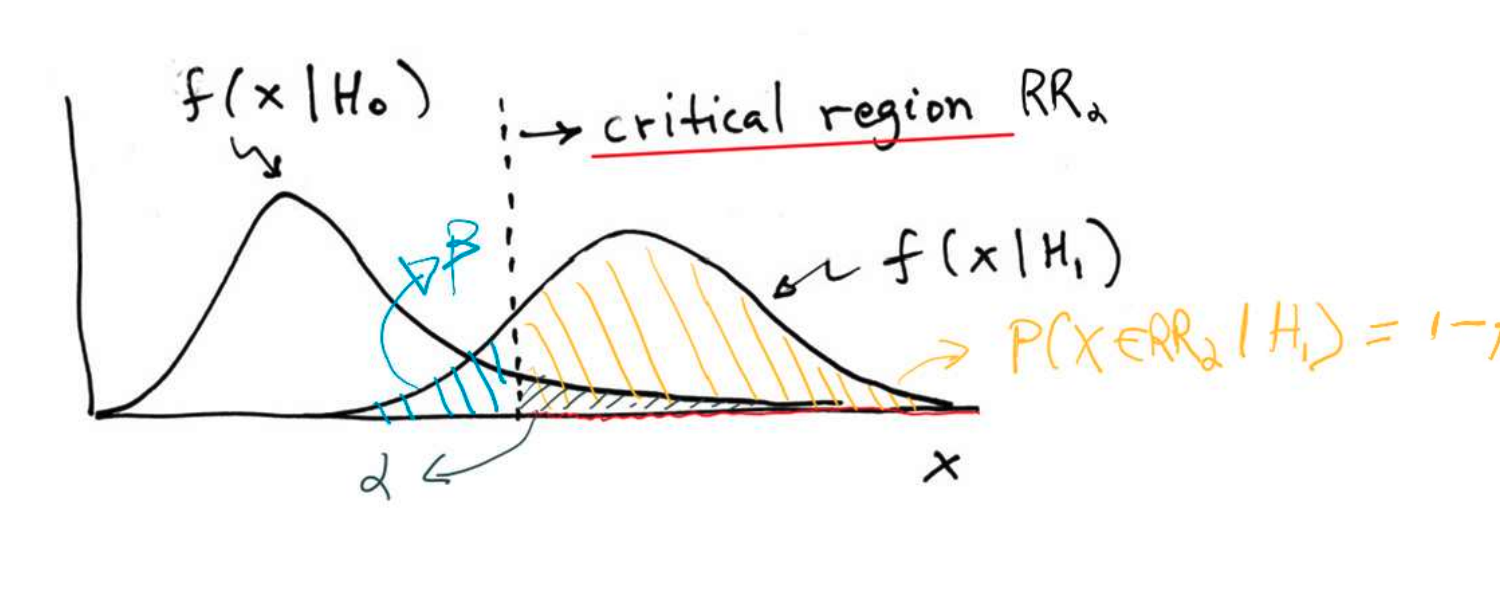 f(x|H₀)
→ critical region RR₂
β
f(x|H₁)
P(X∈RR₂|H₁) = 1-
α
x